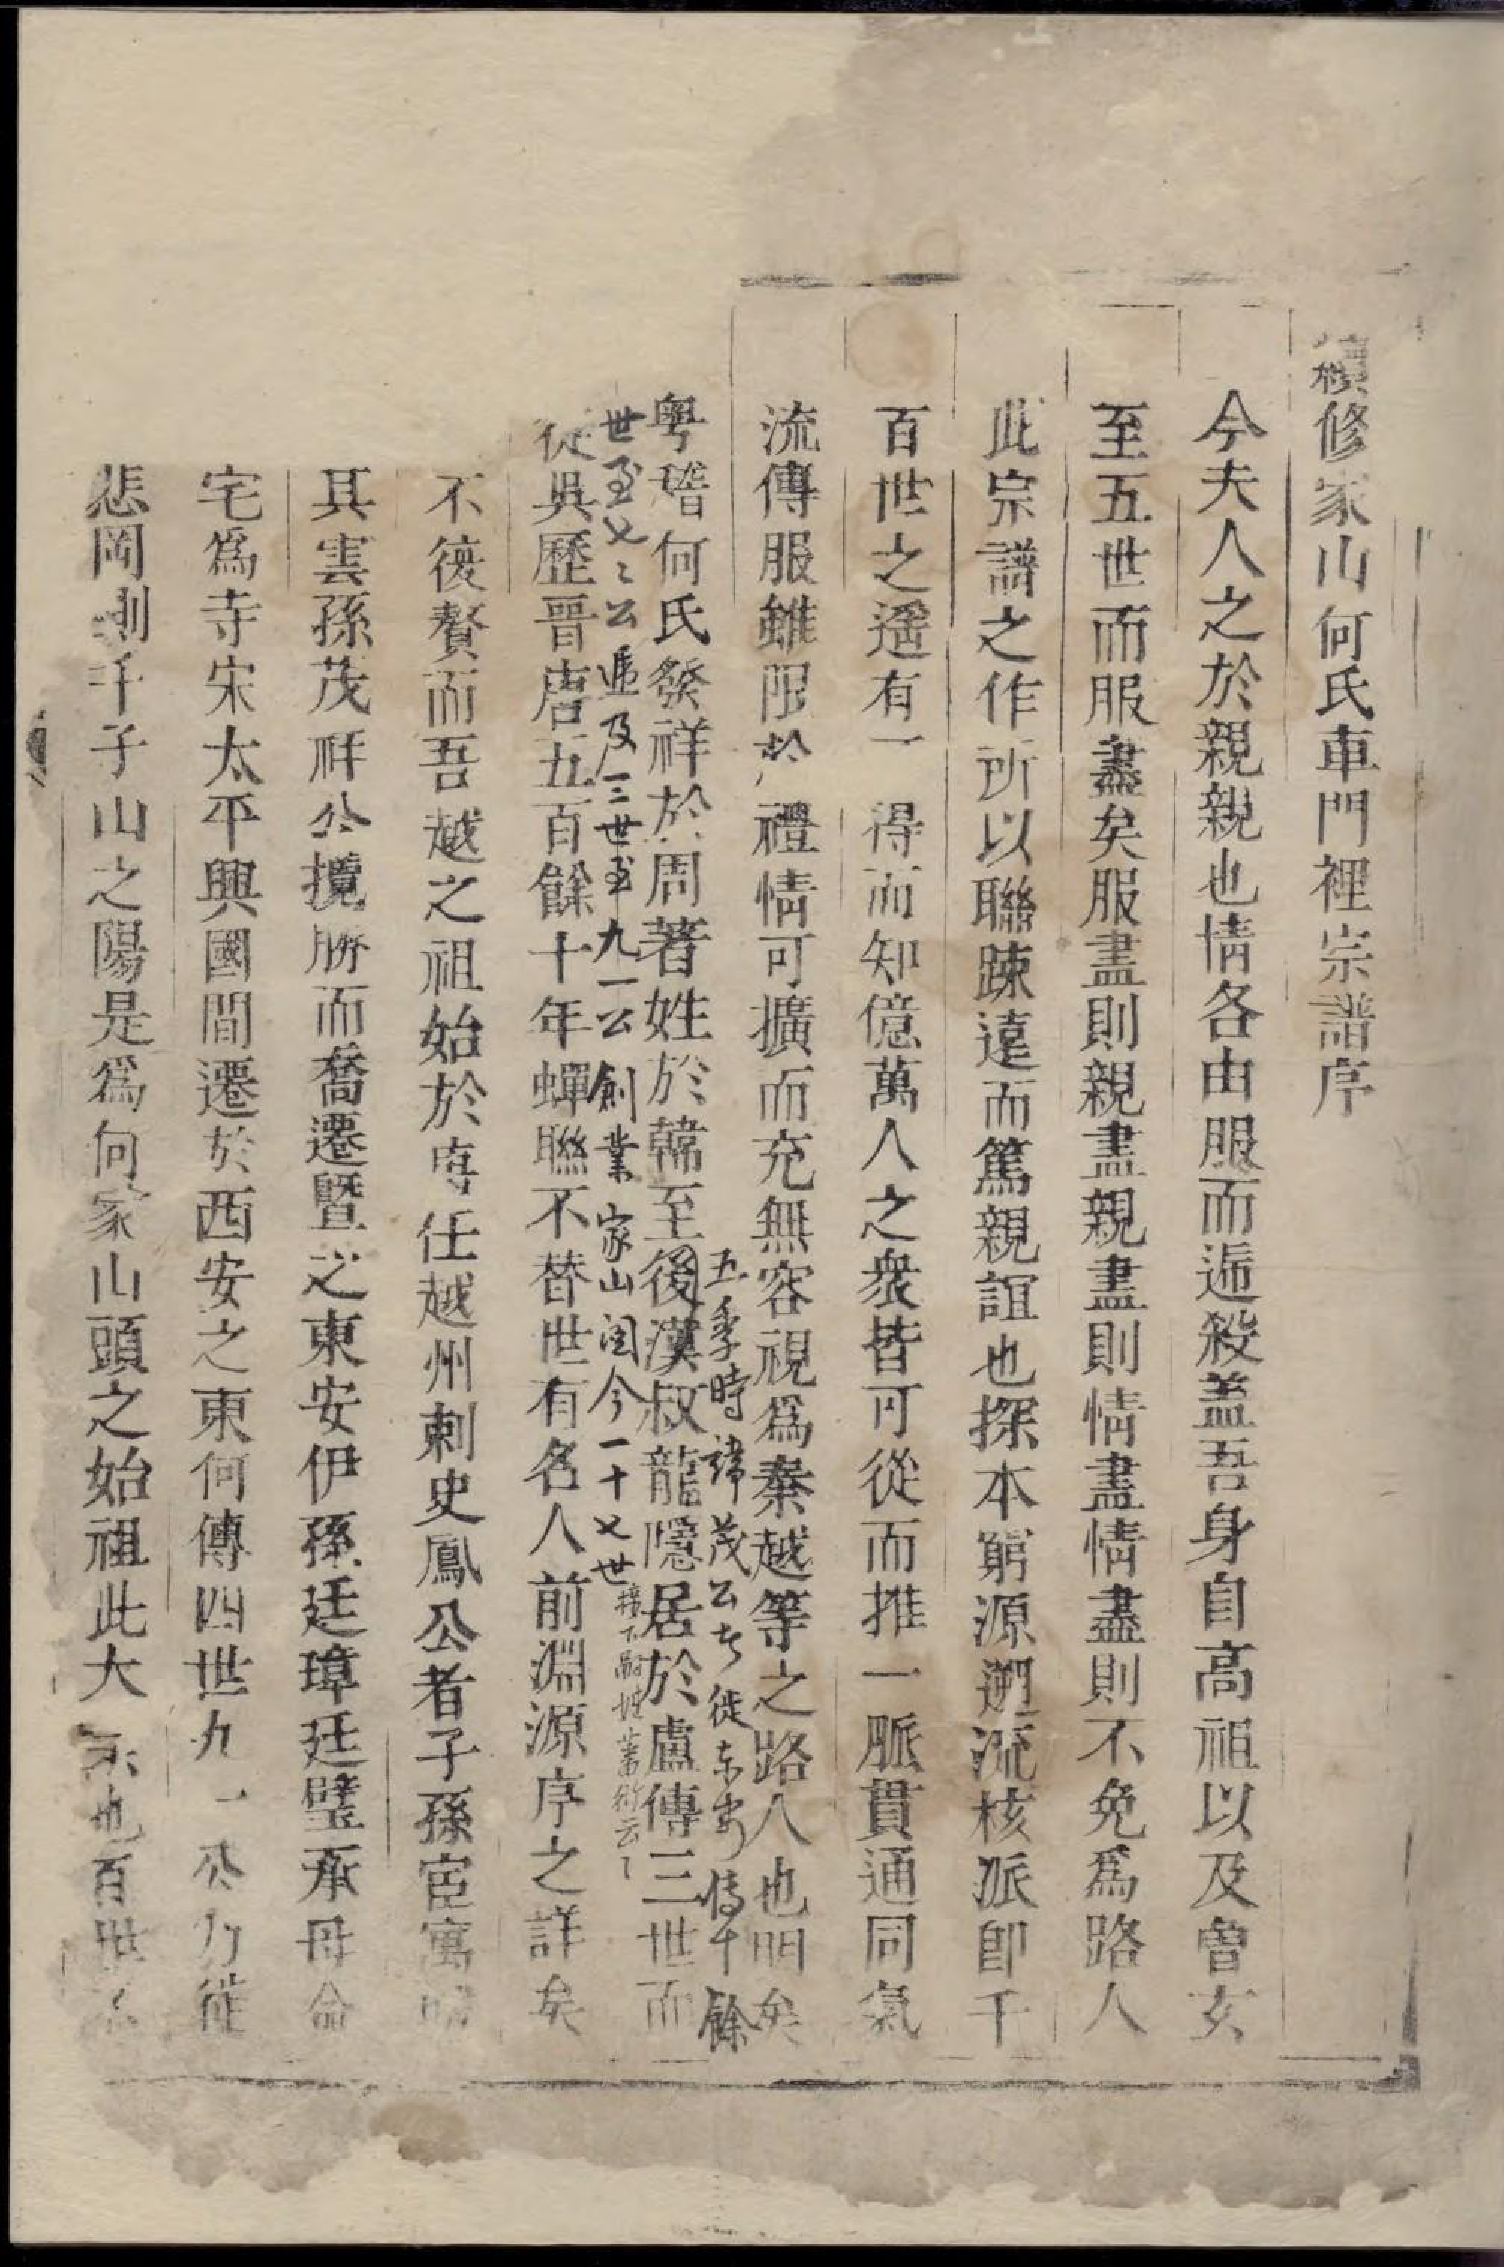 續修家山何氏車門裡宗譜序
今夫人之於親親也情各由服而遞殺盖吾身自高祖以及曾玄
至五世而服盡矣服盡則親盡親盡則情盡情盡則不免爲路人
此宗譜之作所以聯踈遠而篤親誼也探本窮源遡流核派卽千
百世之遥有一得而知億萬人之衆皆可從而推一脈貫通同氣
流傳服雖限於禮情可擴而充無容視爲秦越等之路人也明矣
五季時諱茂公者徙東安傳十餘
粤稽何氏發祥於周著姓於韓至後漢叔龍隱居於盧傳三世而
世至乂乂公遞及三世至九一公創業家山閱今一十乂世
蕃衍云
從吳歷晉唐五百餘十年蟬聯不替世有名人前淵源序之詳矣
不復贅而吾越之祖始於唐任越州刺史鳳公者子孫宦寓
其雲孫茂祥公攬勝而喬遷暨之東安伊孫廷璋廷璧承母命
宅爲寺宋太平興國間遷於西安之東何傳四世九一公乃徙
悲岡剏千子山之陽是爲何家山頭之始祖此大宗也百世